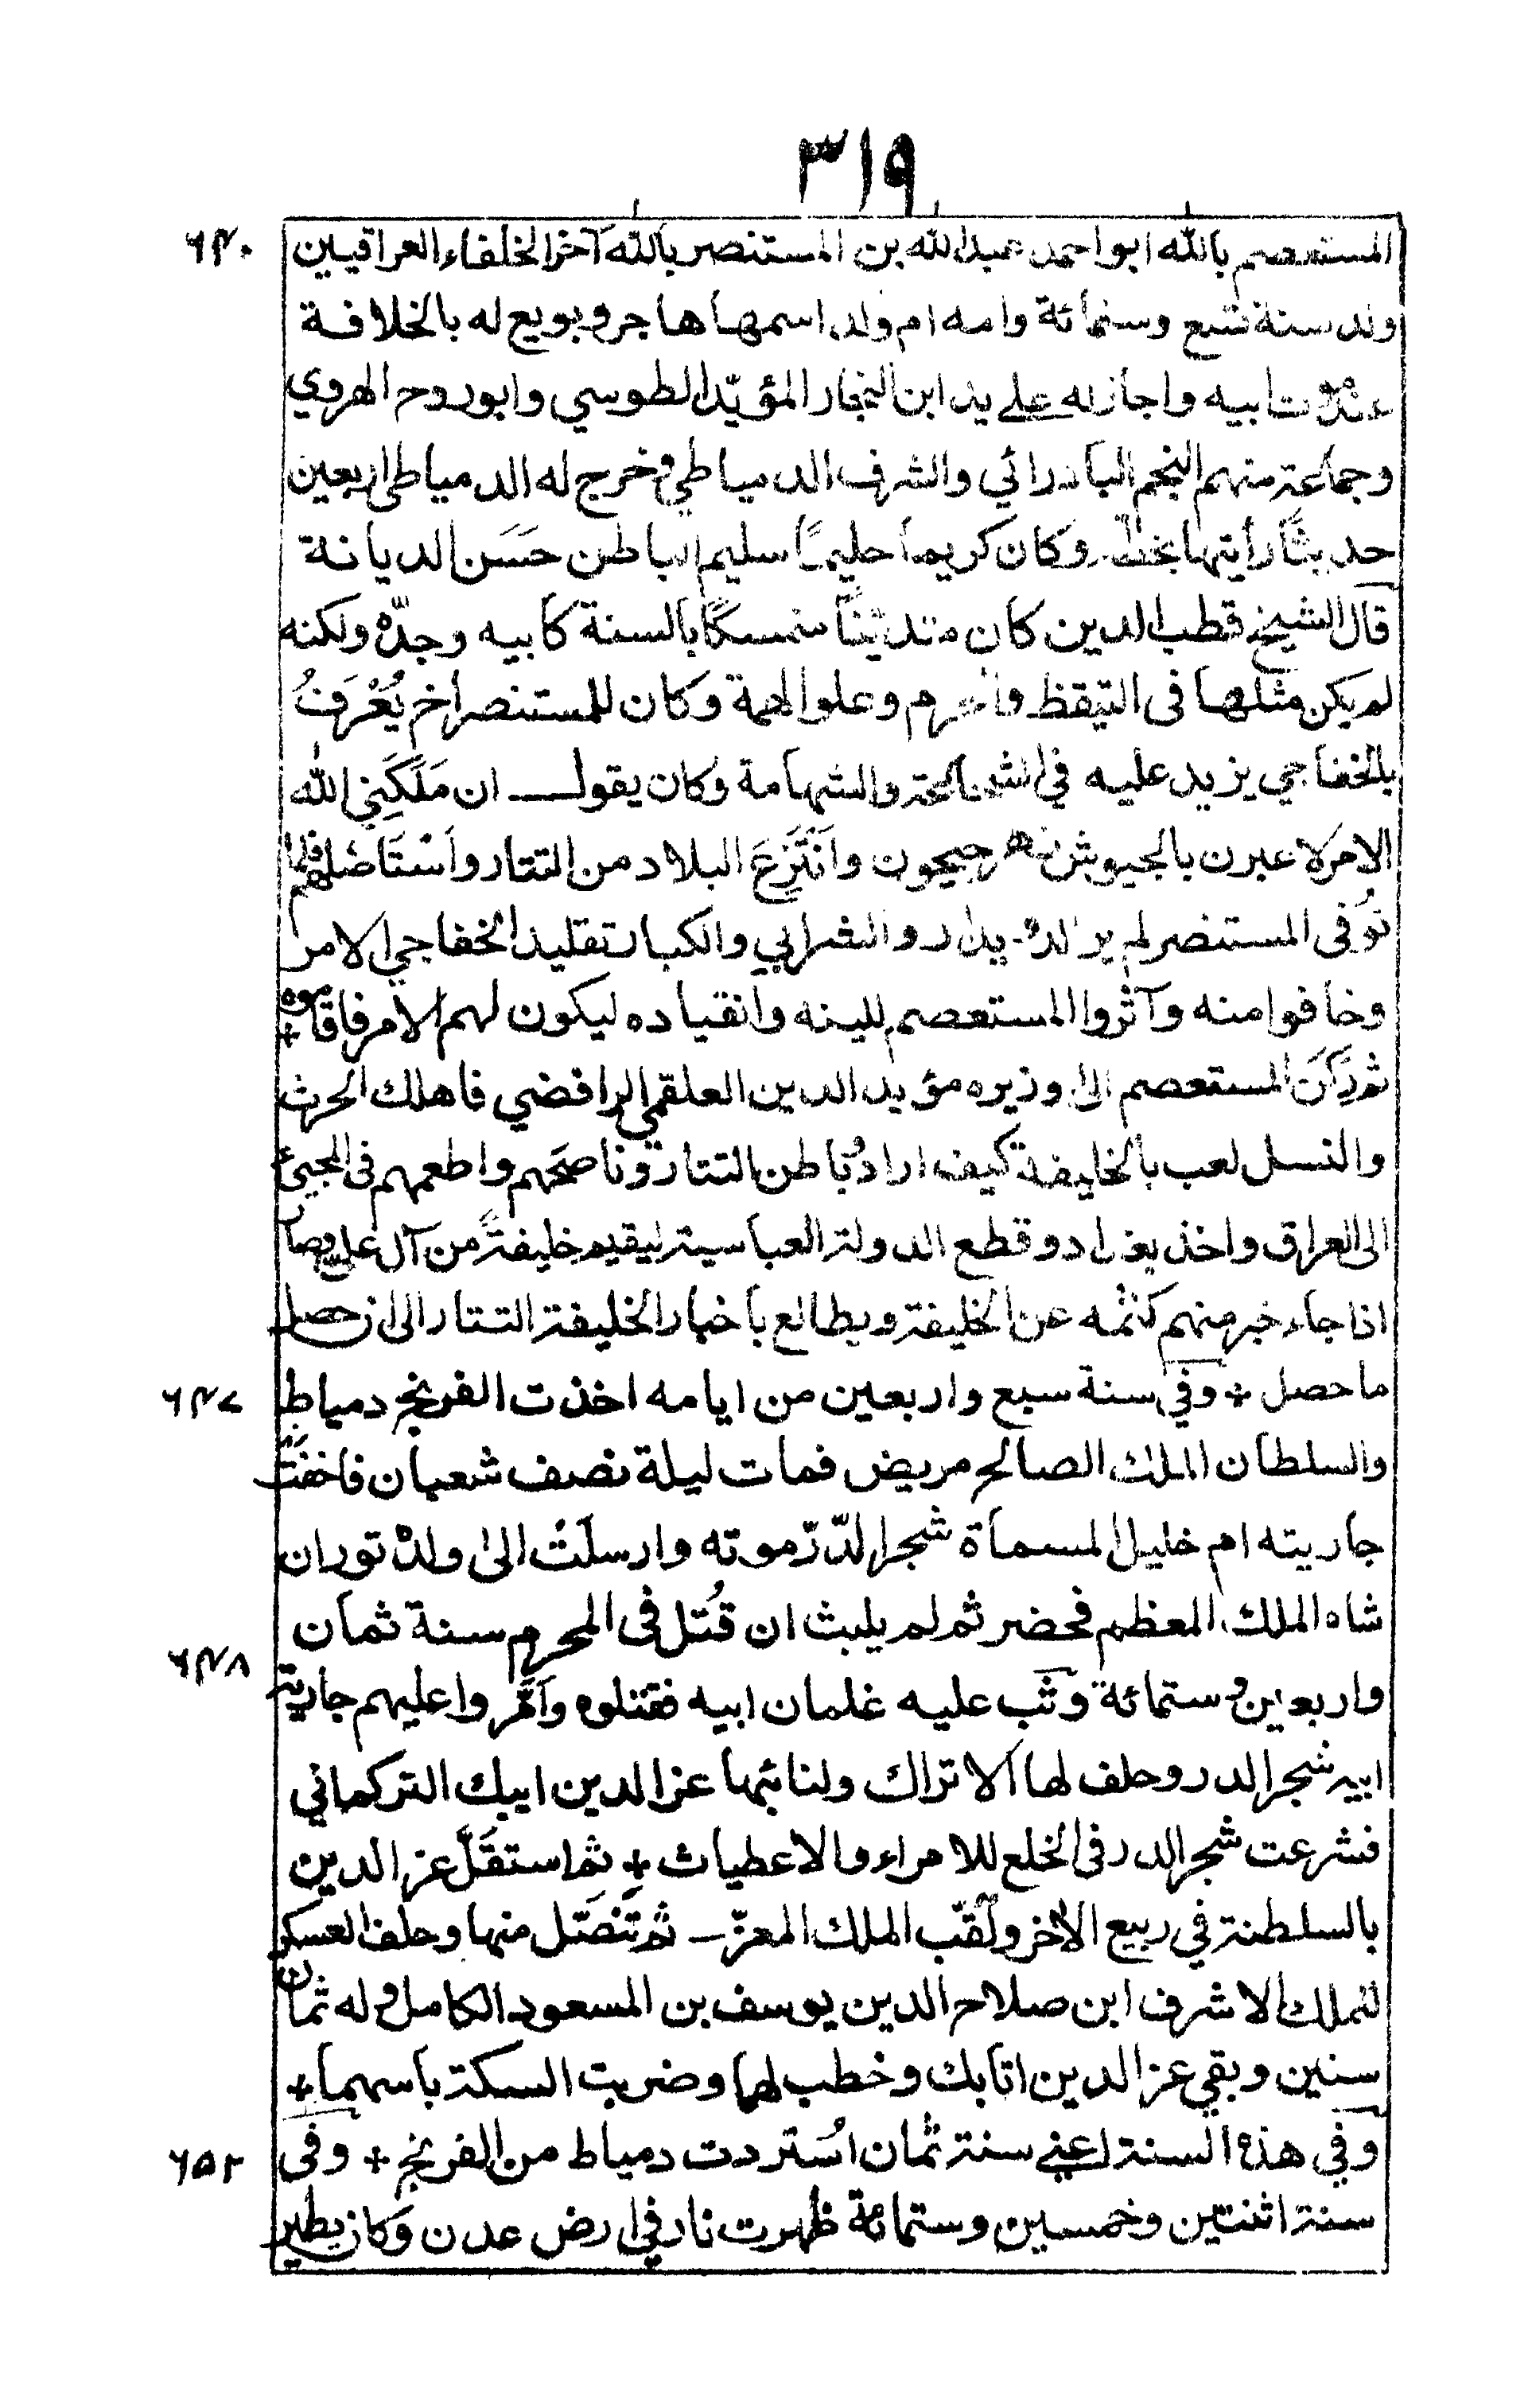 ٣١٩
المستعصم بالله ابو احمد عبد الله بن المستنصر بالله آخر الخلفاء العراقيين ٦٤٠
ولد سنة تسع وستمائة وامه ام ولد اسمها هاجر وبويع له بالخلافة
عند موت ابيه واجاز له على يد ابن النجار المؤيّد الطوسي وابو روح الهروي
وجماعة منهم النجم البادرائي والشرف الدمياطي وخرج له الدمياطي اربعين
حديثًا رأيتها بخطه وكان كريما حليمًا سليم الباطن حَسَن الديانة
قال الشيخ قطب الدين كان متديّنًا متمسكًا بالسنة كابيه وجدّه ولكنه
لم يكن مثلهما فى التيقظ والحزم وعلو الهمة وكان للمستنصر اخ يُعْرَفُ
بالخفاجي يزيد عليه في الشجاعة والشهامة وكان يقول ان مَلَّكَنِي الله
الامر لا عبرن بالجيوش نهر جيحون وانْتَزِعَ البلاد من التتار واَسْتَاصَلهم فلما
تُوُفى المستنصر لم ير الدويدار والشرابي والكبار تقليد الخفاجي الامر
وخافوا منه وآثروا المستعصم للينه وانقياده ليكون لهم الامر فاقاموه +
ثم رَكَنَ المستعصم الى وزيره مؤيد الدين العلقمي الرافضي فاهلك الحرث
والنسل لعب بالخليفة كيف اراد وباطن التتار وناصحهم واطعمهم فى المجيئ
الى العراق واخذ بغداد وقطع الدولة العباسية ليقيم خليفةً من آل علي وصار
اذا جاء خبر منهم كتمه عن الخليفة ويطالع باخبار الخليفة التتار الى ان حصل
ما حصل + وفي سنة سبع واربعين من ايامه اخذت الفرنج دمياط ٦٤٧
والسلطان الملك الصالح مريض فمات ليلة نصف شعبان فاخفَتْ
جاريته ام خليل المسماة شجر الدّرّ موته وارسلَتْ الى ولده توران
شاه الملك المعظم فحضر ثم لم يلبث ان قُتل فى المحرم سنة ثمان
واربعين وستمائة وثب عليه غلمان ابيه فقتلوه وامَّروا عليهم جارية ٦٤٨
ابيه شجر الدر وحلف لها الاتراك ولنائبها عز الدين ايبك التركماني
فشرعت شجر الدر فى الخلع للامراء والاعطيات + ثم استقَلَّ عز الدين
بالسلطنة في ربيع الآخر ولُقّب الملك المعزّ ثم تَنَصَّل منها وحلف العسكر
للملك الاشرف ابن صلاح الدين يوسف بن المسعود الكامل وله ثمان
سنين وبقي عز الدين اتابك وخطب لهما وضربت السكة باسمهما +
وفي هذه السنة اعني سنة ثمان اُستردت دمياط من الفرنج + وفى
سنة اثنتين وخمسين وستمائة ظهرت نار في ارض عدن وكان يطير ٦٥٢